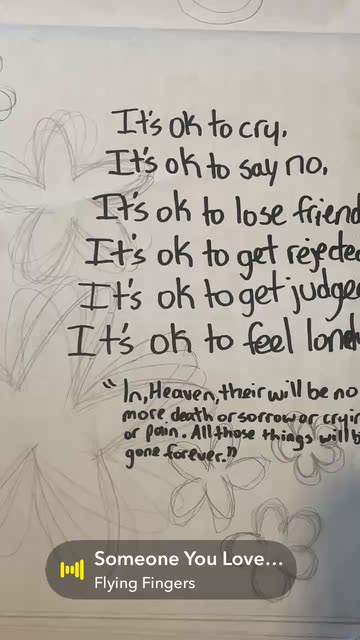 It's ok to cry.
It's ok to say no.
It's ok to lose friend
It's ok to get rejected
It's ok to get judge
It's ok to feel lone
"In, Heaven, their will be no
more death or sorrow or cryin
or pain. All those things will b
gone forever."
Someone You Love...
Flying Fingers